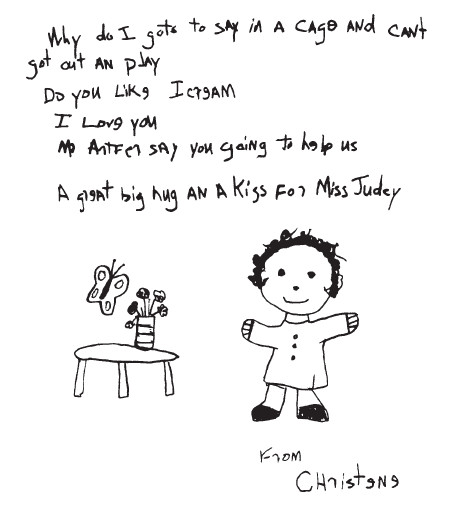 Why do I gots to SAy in A CAGe AND CANt
got out AN pLAy
Do you Like IcreAM
I Love you
Mp Antfen SAy you going to help us
A great big hug AN A Kiss For Miss Judey
From
CHristene